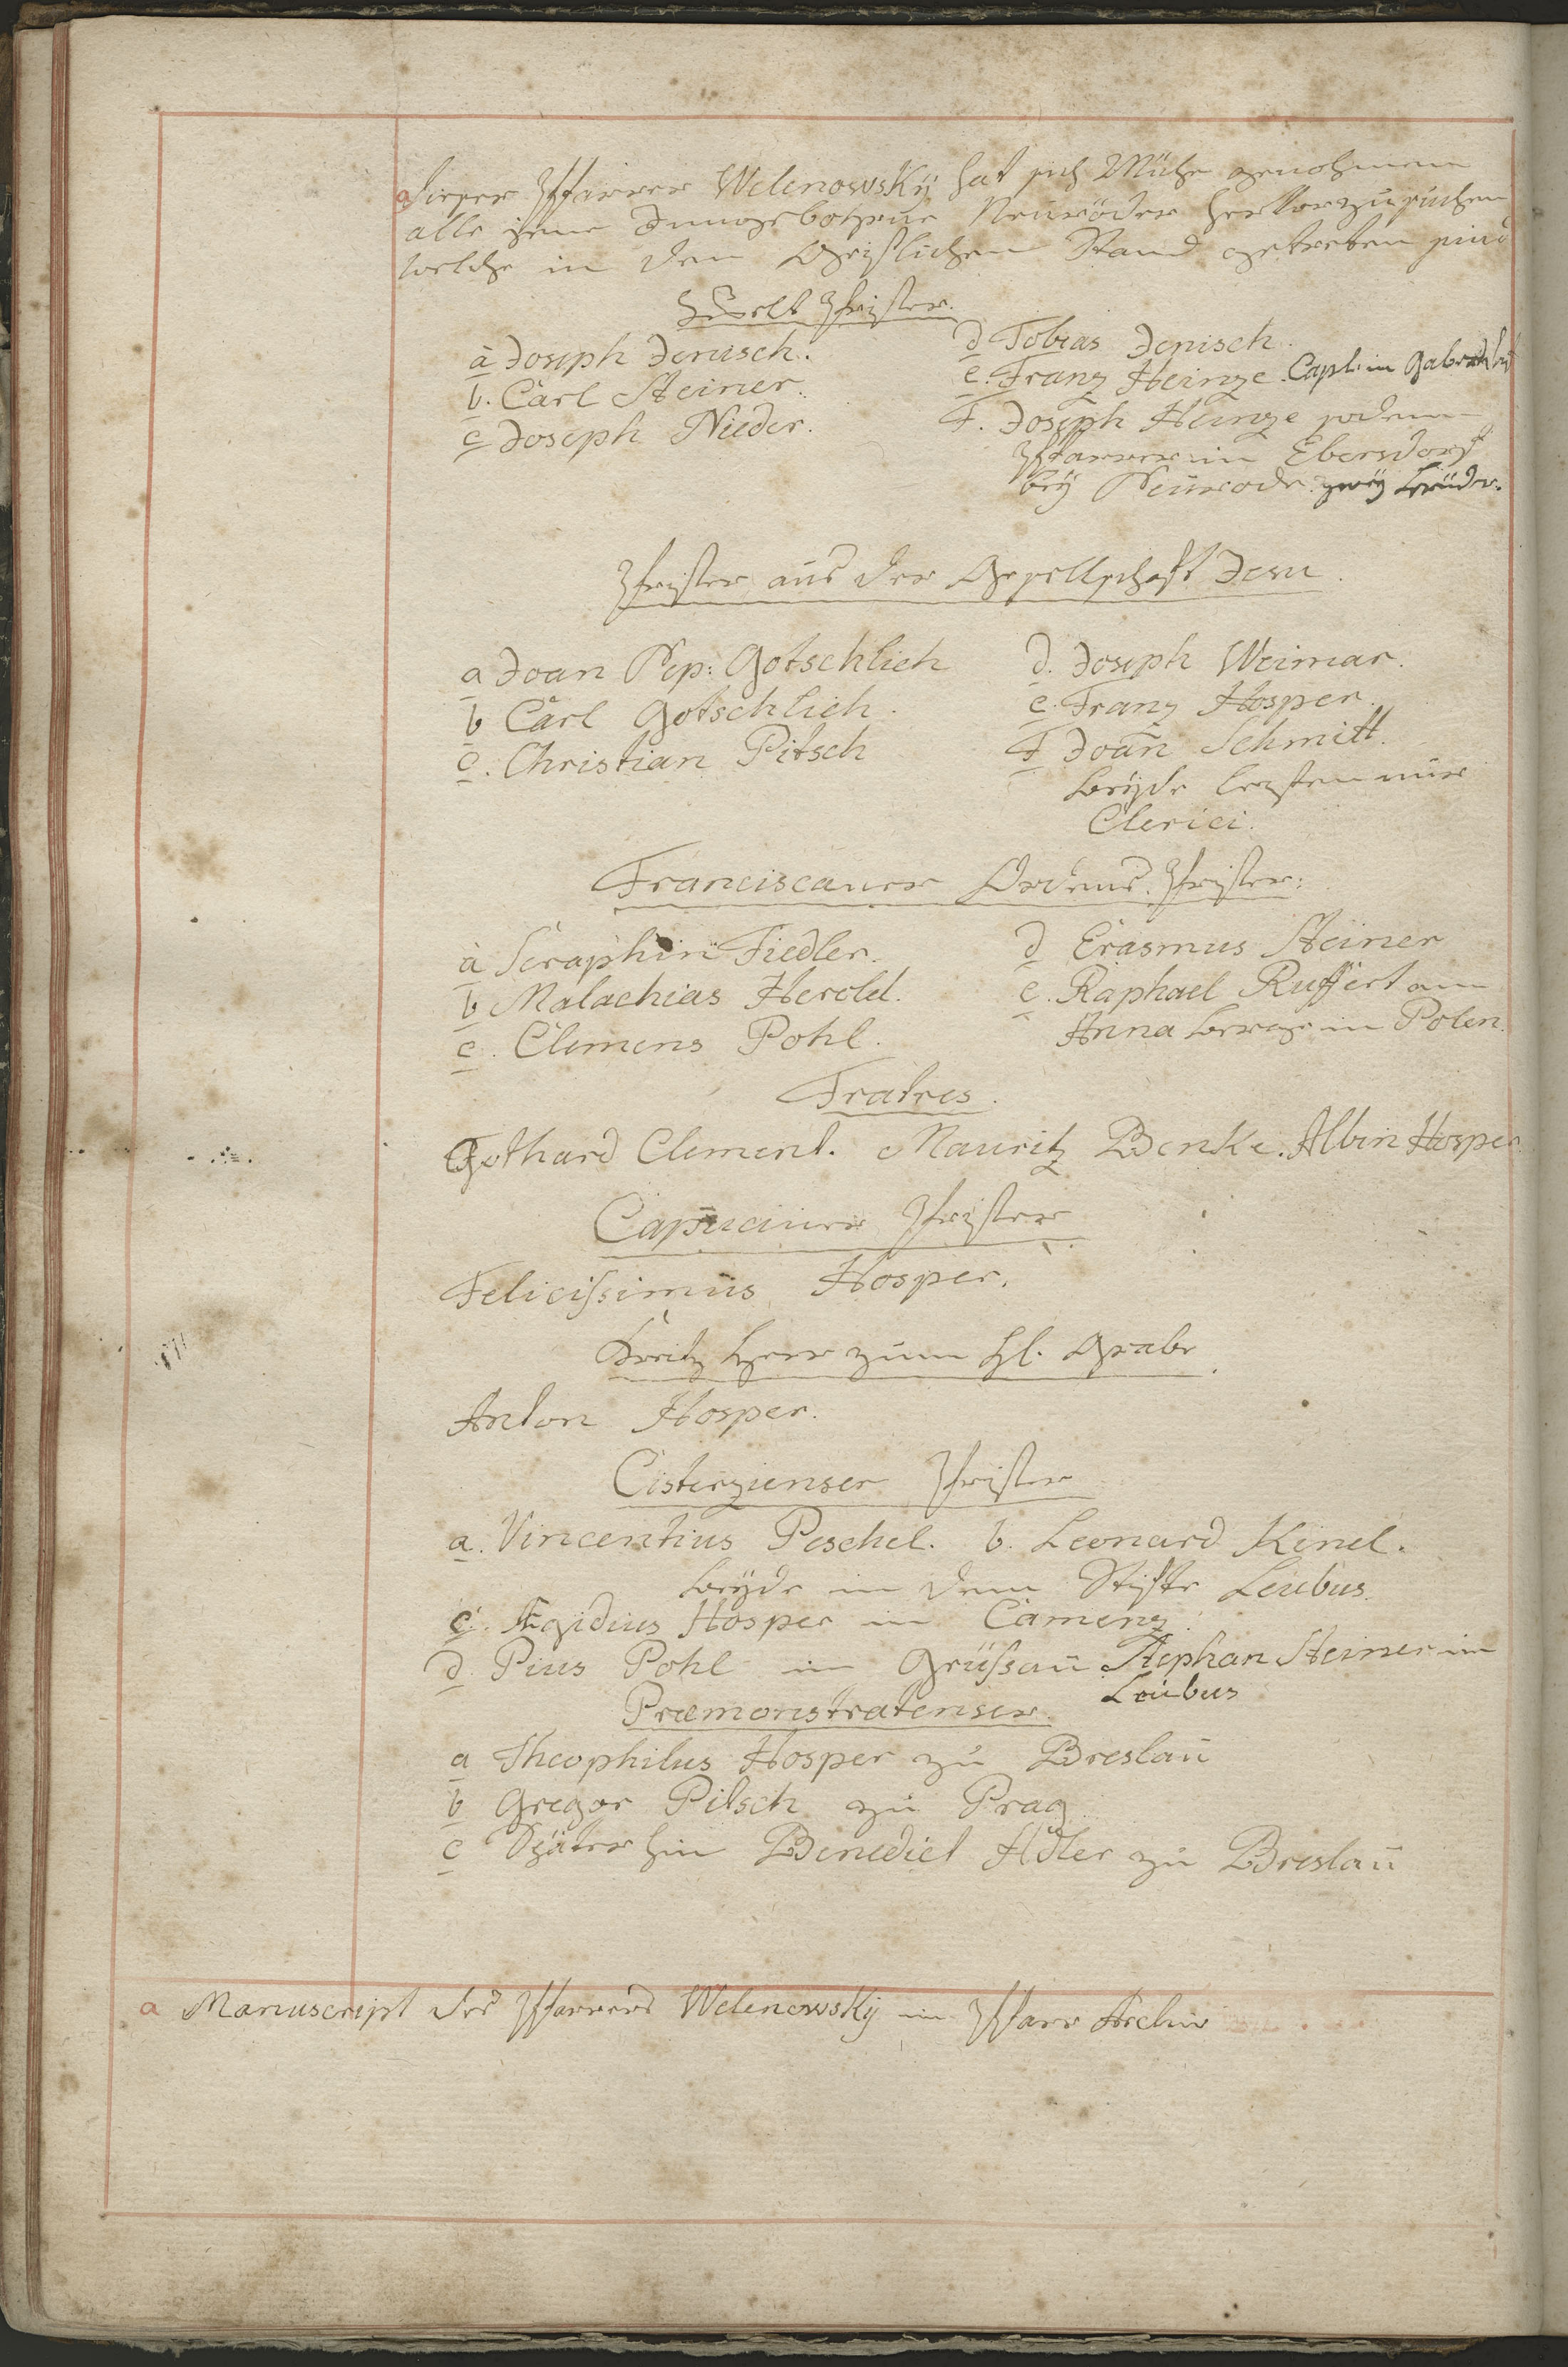 a Dieser Pfarrer Welenowskÿ hat sich Mühe genohmen
alle jene Inngebohrne Neuröder hervorzusuchen
welche in den Geistlichen Stand getretten sind
Welt Prister.
a Joseph Jenisch.
b. Carl Steiner.
c Joseph Nieder.
d Tobias Jenisch.
e. Franz Heinze. Capl. in
F. Joseph Heinze sodenn
Pfarrer in Ebersdorf
beÿ Neurode. zweÿ brüder.
Prister aus der Gesellschaft Jesu.
a Joan Nep: Gotschlich
b Carl Gotschlich.
c. Christian Pitsch
d. Joseph Weimar.
e. Franz Hosper.
F Joan̄ Schmitt.
beÿde leztern nur
Clerici.
Franciscaner Ordens. Prister:
a Seraphin Fiedler.
b Malachias Herold.
c. Clemens Pohl.
d Erasmus Steiner
e. Raphael Ruffert am
Anna berge in Polen.
Fratres.
Gothard Clement. Mauritz Benke. Albin Hosper
Capuciner Prister
Felicissimus Hosper.
Kreitz Herr zum Hl. Grabe.
Anton Hosper.
Cisterzienser Prister
a. Vincentius Peschel. b. Leonard Kinel.
beÿde in dem Stifte Leubus.
c. Ægidius Hosper in Camenz.
d. Pius Pohl in Grüssau. Stephan Steiner in
Leubus
Præmonstratenser.
a Theophilus Hosper zu Breslau
b Gregor Pitsch zu Prag
c Späterhin Benedict Adler zu Breslau
a Manuscript des Pfarrers Welenowskÿ im Pfarr Archiv